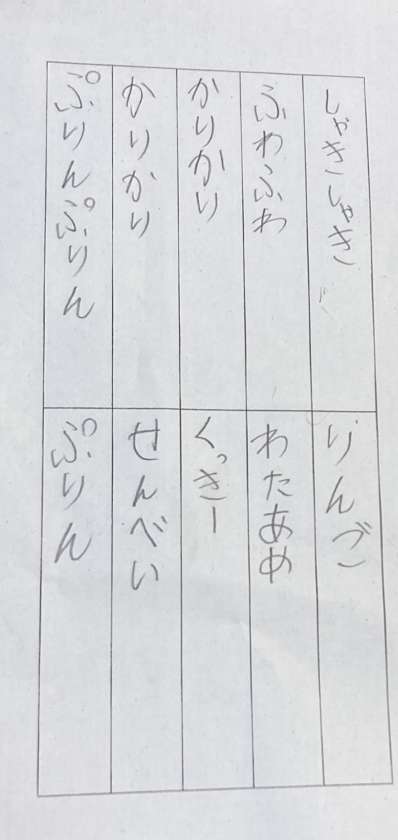 しゃきしゃき
りんご
ふわふわ
わたあめ
かりかり
くっきー
かりかり
せんべい
ぷりんぷりん
ぷりん